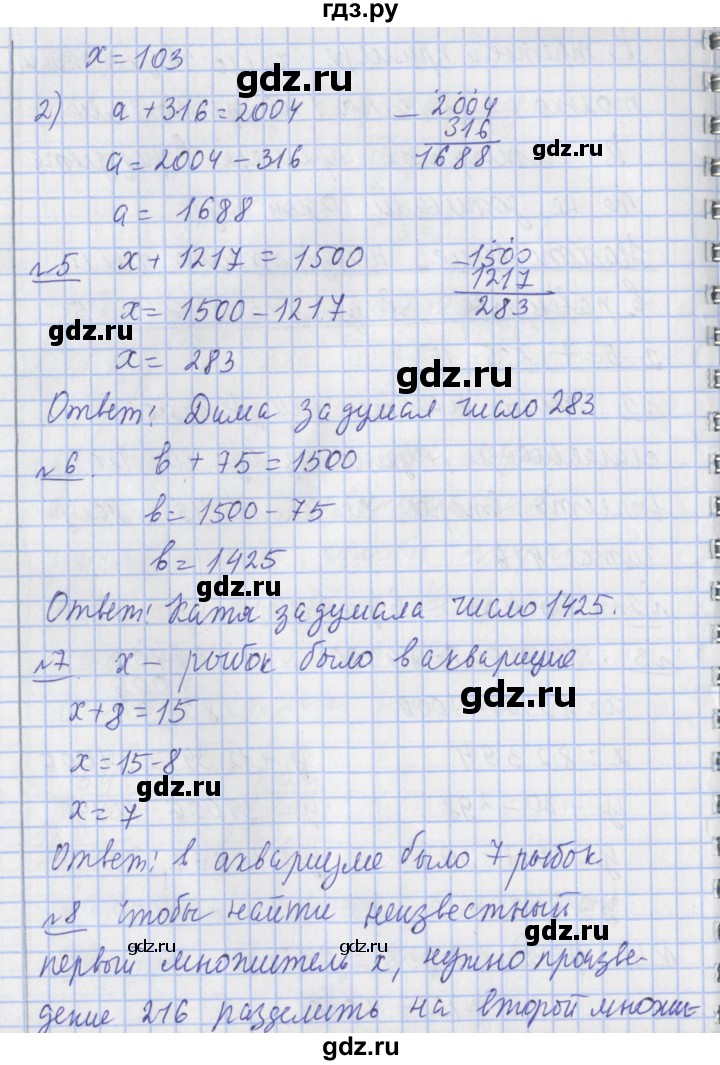 гдз.ру
x = 103
gdz.ru
2) a + 316 = 2004
2004
- 316
1688
gdz.ru
a = 2004 - 316
a = 1688
№5 x + 1217 = 1500
- 1500
1217
283
x = 1500 - 1217
gdz.ru
x = 283
gdz.ru
Ответ: Дима задумал число 283
№6. в + 75 = 1500
в = 1500 - 75
в = 1425
gdz.ru
Ответ: Катя задумала число 1425.
№7. x – рыбок было в аквариуме
gdz.ru
x + 8 = 15
x = 15 - 8
gdz.ru
x = 7
Ответ: в аквариуме было 7 рыбок
№8 Чтобы найти неизвестный
gdz.ru gdz.ru gdz.ru
первый множитель x, нужно произве-
дение 216 разделить на второй множи-
gdz.ru